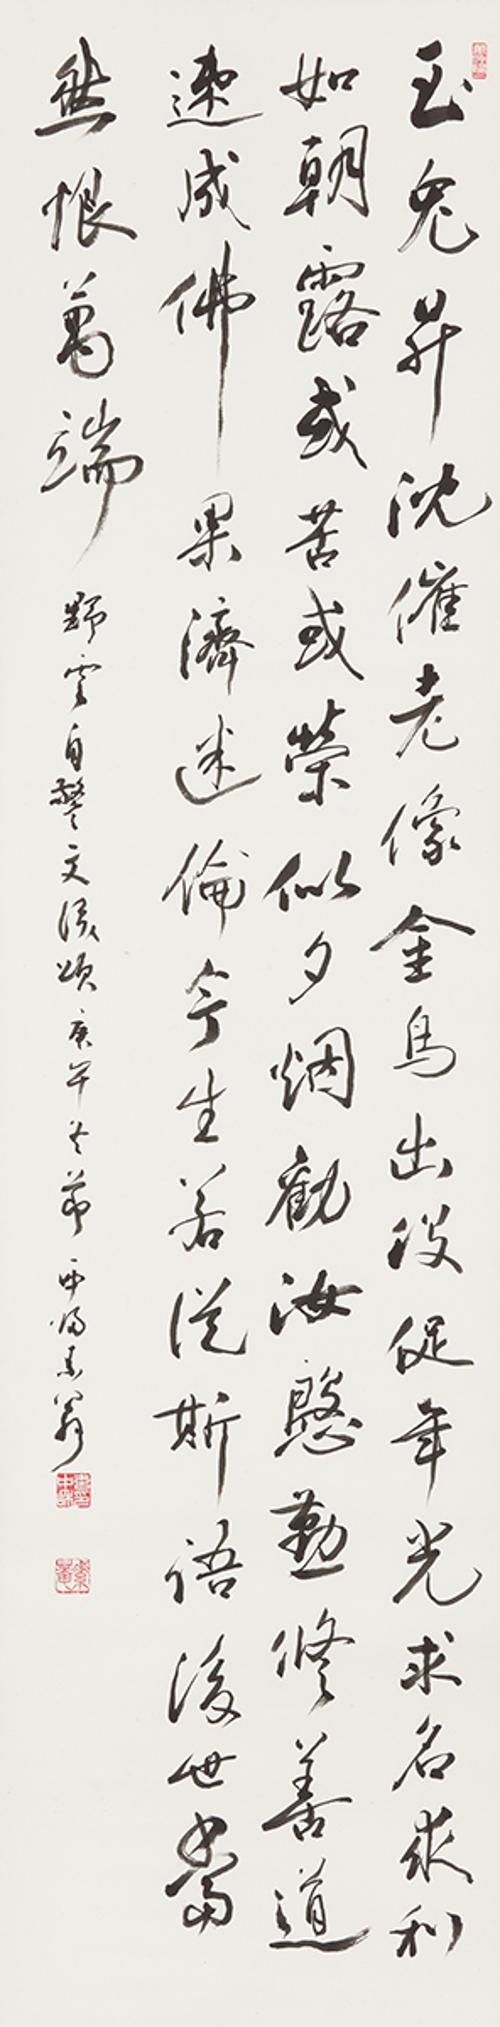 玉兔昇沈催老像金烏出沒促年光求名求利
如朝露或苦或榮似夕烟勸汝慇懃修善道
速成佛果濟迷倫今生若從斯語後世當
然恨萬端
野雲自警文後頌庚午冬節